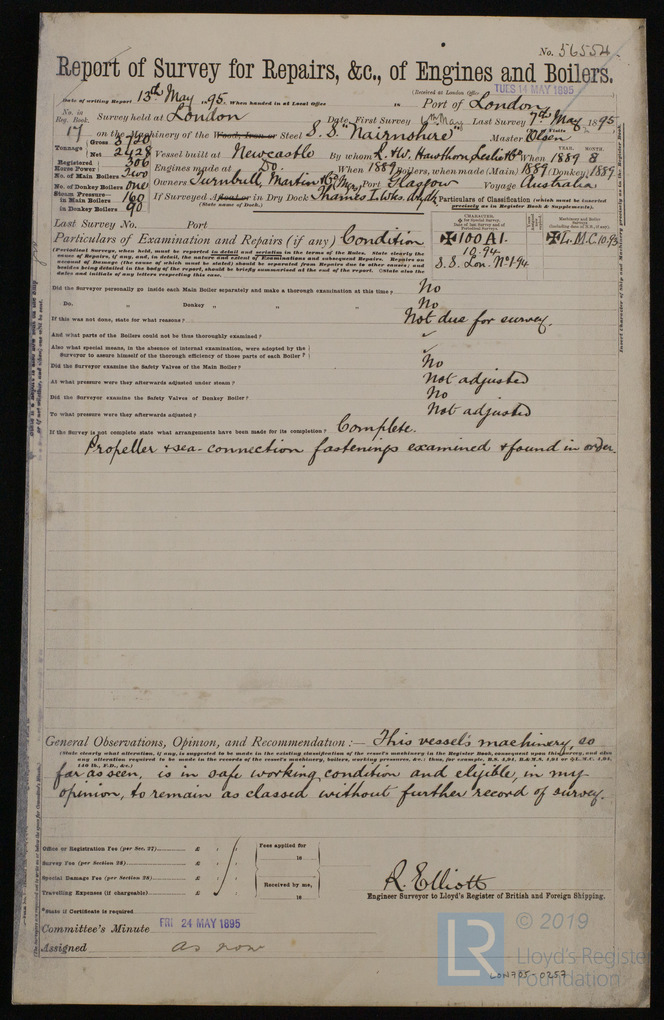 No. 56554
Report of Survey for Repairs, &c., of Engines and Boilers.
(Received at London Office TUES 14 MAY 1895
Date of writing Report 13th May 1895, When handed in at Local Office 18 Port of London
No. in Reg. Book. 17 Survey held at London Date, First Survey 7th May Last Survey 7th May 1895
on the Machinery of the Wood, Iron or Steel S. S. "Nairnshire" Master Olsen
Tonnage Gross 3720 Net 2428 Vessel built at Newcastle By whom R. & W. Hawthorn, Leslie & Co When 1889 YEAR. MONTH. 8
Registered Horse Power 300 Engines made at Do. When 1889 Boilers, when made (Main) 1889 (Donkey) 1889
No. of Main Boilers two
No. of Donkey Boilers one Owners Turnbull, Martin & Co Port Glasgow Voyage Australia
Steam Pressure in Main Boilers 160 in Donkey Boilers 90 If Surveyed Afloat or in Dry Dock Thames I. Wks.
(State name of Dock.) Particulars of Classification (which must be inserted precisely as in Register Book & Supplements).
Last Survey No. Port
Particulars of Examination and Repairs (if any) Condition
CHARACTER. ✠100A1. 10.94 S.S. Lon. No 1.94
✠L.M.C. 10,93
Did the Surveyor personally go inside each Main Boiler separately and make a thorough examination at this time? No
Do. „ Donkey „ „ „ No
If this was not done, state for what reasons? Not due for survey.
And what parts of the Boilers could not be thus thoroughly examined?
Also what special means, in the absence of internal examination, were adopted by the
Surveyor to assure himself of the thorough efficiency of those parts of each Boiler?
Did the Surveyor examine the Safety Valves of the Main Boiler? No
At what pressure were they afterwards adjusted under steam? Not adjusted
Did the Surveyor examine the Safety Valves of Donkey Boiler? No
To what pressure were they afterwards adjusted? Not adjusted
If the Survey is not complete state what arrangements have been made for its completion? Complete.
Propeller & sea-connection fastenings examined & found in order.
General Observations, Opinion, and Recommendation :— This vessel's machinery, so
(State clearly what alteration, if any, is suggested to be made in the existing classification of the vessel's machinery in the Register Book, consequent upon this survey, and also
any alteration required to be made in the records of the vessel's machinery, boilers, working pressures, &c.; thus, for example,
far as seen, is in safe working condition and eligible, in my
opinion, to remain as classed without further record of survey.
Office or Registration Fee (per Sec. 27) £
Survey Fee (per Section 28) £
Special Damage Fee (per Section 28) £
Travelling Expenses (if chargeable) £
Fees applied for 18
Received by me, 18
R. Elliott
Engineer Surveyor to Lloyd's Register of British and Foreign Shipping.
*State if Certificate is required
Committee's Minute FRI 24 MAY 1895
Assigned as now
LR © 2019 Lloyd's Register Foundation
LON705-0257